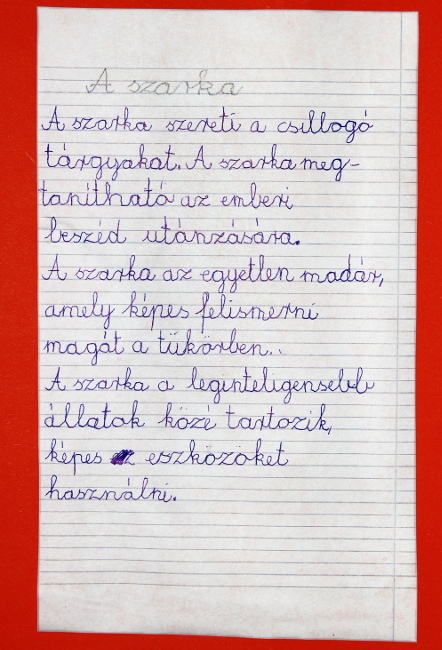 A szarka
A szarka szereti a csillogó
tárgyakat. A szarka meg-
tanítható az emberi
beszéd utánzására.
A szarka az egyetlen madár,
amely képes felismerni
magát a tükörben..
A szarka a leginteligensebb
állatok közé tartozik,
képes eszközöket
használni.